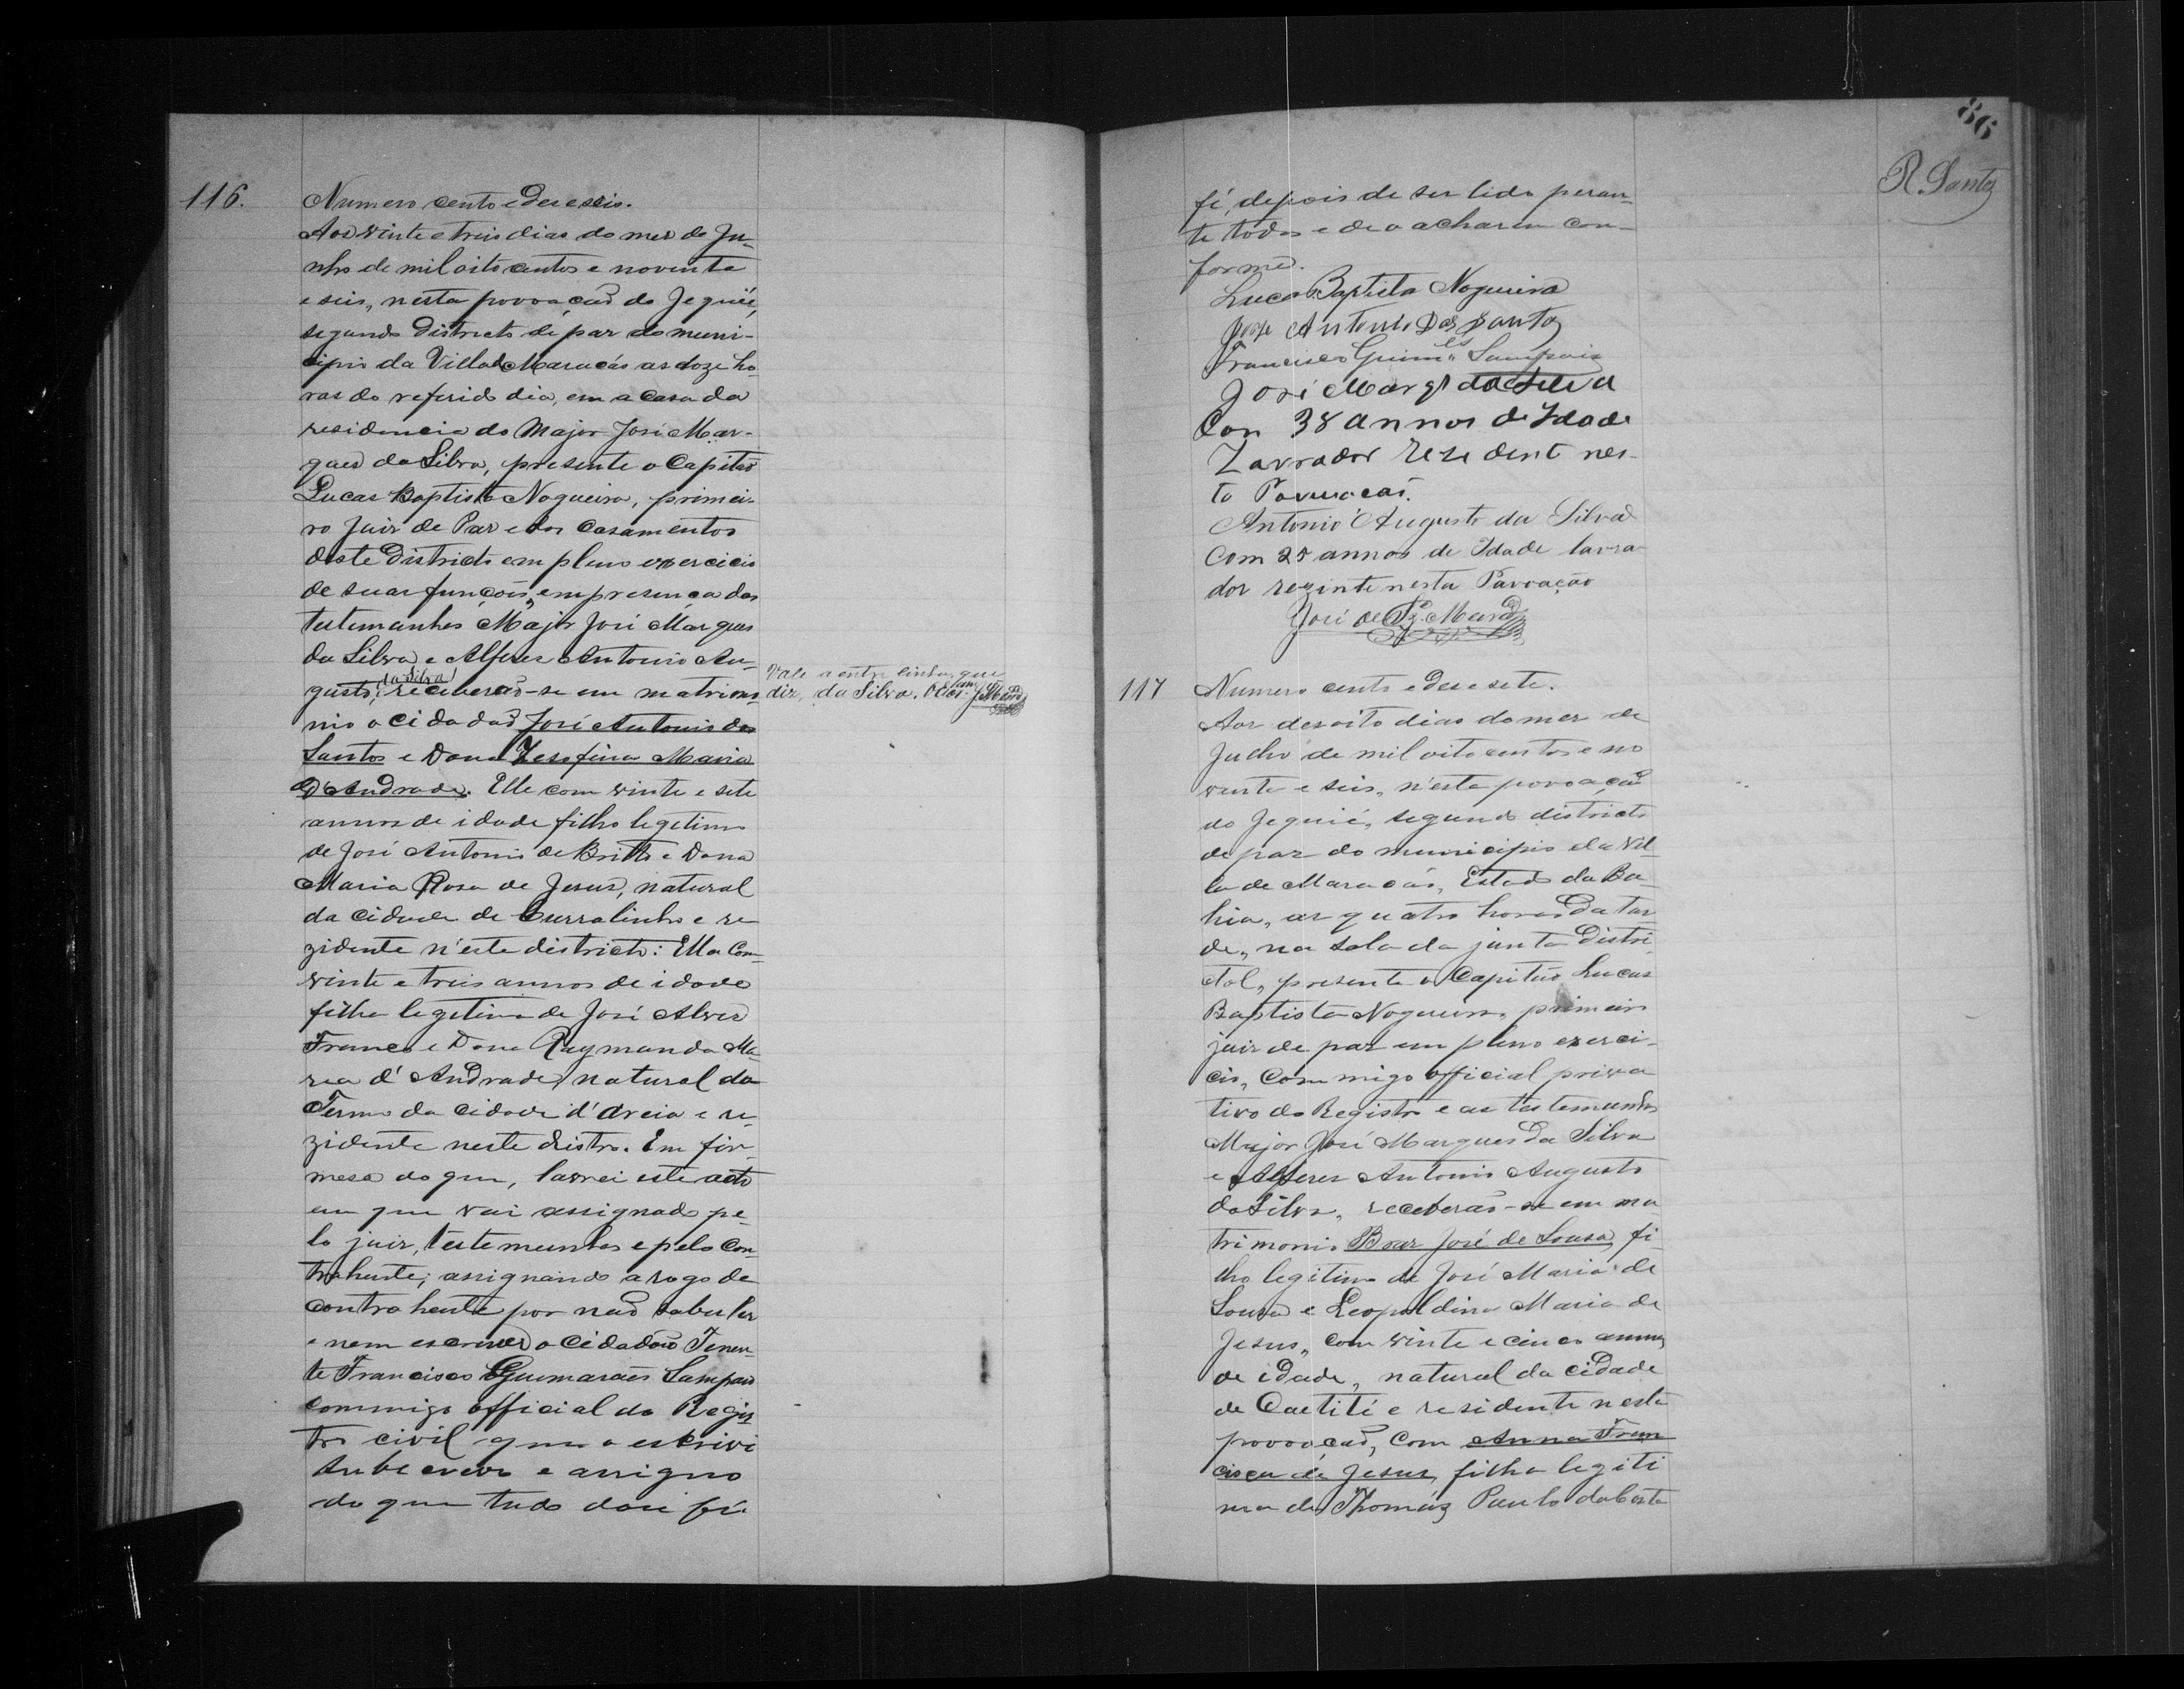 116.
Numero cento e deseseis.
Aos vinte e treis dias do mes de Ju-
nho de mil oito centos e noventa
e seis, nesta povoação do Jequié,
segundo districto de paz do muni-
cipio da Villa de Maracás as doze ho-
ras do referido dia, em a casa da
residencia do Major José Mar-
ques da Silva, presente o Capitão
Lucas Baptista Nogueira, primei-
ro Juiz de Paz e dos Casamentos
deste districto em pleno exercicio
de suas funçoẽs, em presença das
testemunhas Major José Marques
da Silva e Alferes Antonio Au-
gusto, da Silva receberaõ-se em matrimo-
nio o cidadaõ José Antonio dos
Santos e Dona Zesefina Maria
D'Andrade. Elle com vinte e sete
annos de idade filho legitimo
de José Antonio de Britto e Dona
Maria Rosa de Jesus, natural
da cidade de Curralinho e re-
zidente n'este districto: Ella com
vinte e treis annos de idade
filha legitima de José Alves
Franco e Dona Raymunda Ma-
ria d'Andrade, natural do
Termo da cidade d'Areia e re-
zidente neste distro. Em fir-
mesa do que, lavrei este acto
em que vai assignado pe-
lo juiz, testemunhas e pelo con-
trahente; assignando a rogo da
contrahente por naõ saber ler
e nem escrever o cidadaõ Tenen-
te Francisco Guimaraẽs Sampaio
commigo official do Regis-
tro civil que o escrivi
subscrevo e assigno
do que tudo dou fé.
Vale a entre linha, que
diz, da Silva.
86
R. Santos
fé, depois de ser lido peran-
te todos e de o acharem con-
forme.
Lucas Baptista Nogueira
José Antonio Dos Santos
Francisco Guim.es Sampaio
José Marqs da Silva
Con 38 annos de Idade
Lavrador Rezident nes-
ta Povuacaõ.
Antonio Augusto da Silva
Com 25 annos de Idade lavra-
dor rezinte nesta Pavoação
117
Numero cento e dese sete.
Aos desoito dias do mes de
Julho de mil oito centos e no
venta e seis, n'esta povoaçaõ
do Jequié, segundo districto
de paz do municipio da Vil-
la de Maracás, Estado da Ba-
hia, as quatro horas da tar-
de, na sala da junta distri-
ctal, presente o Capitão Lucas
Baptista Nogueira, primeiro
juiz de paz em pleno exerci-
cio, commigo official priva
tivo do Registro e as testemunhas
Major José Marques da Silva
e Alferes Antonio Augusto
da Silva, receberaõ-se em ma
trimonio Braz José de Sousa, fi-
lho legitimo de José Maria de
Sousa e Leopoldina Maria de
Jesus, com vinte e cinco annos
de idade, natural da cidade
de Caetité e residente nesta
povoaçaõ, com Anna Fran
cisca de Jesus, filha legiti
ma de Thomáz Paulo da Costa